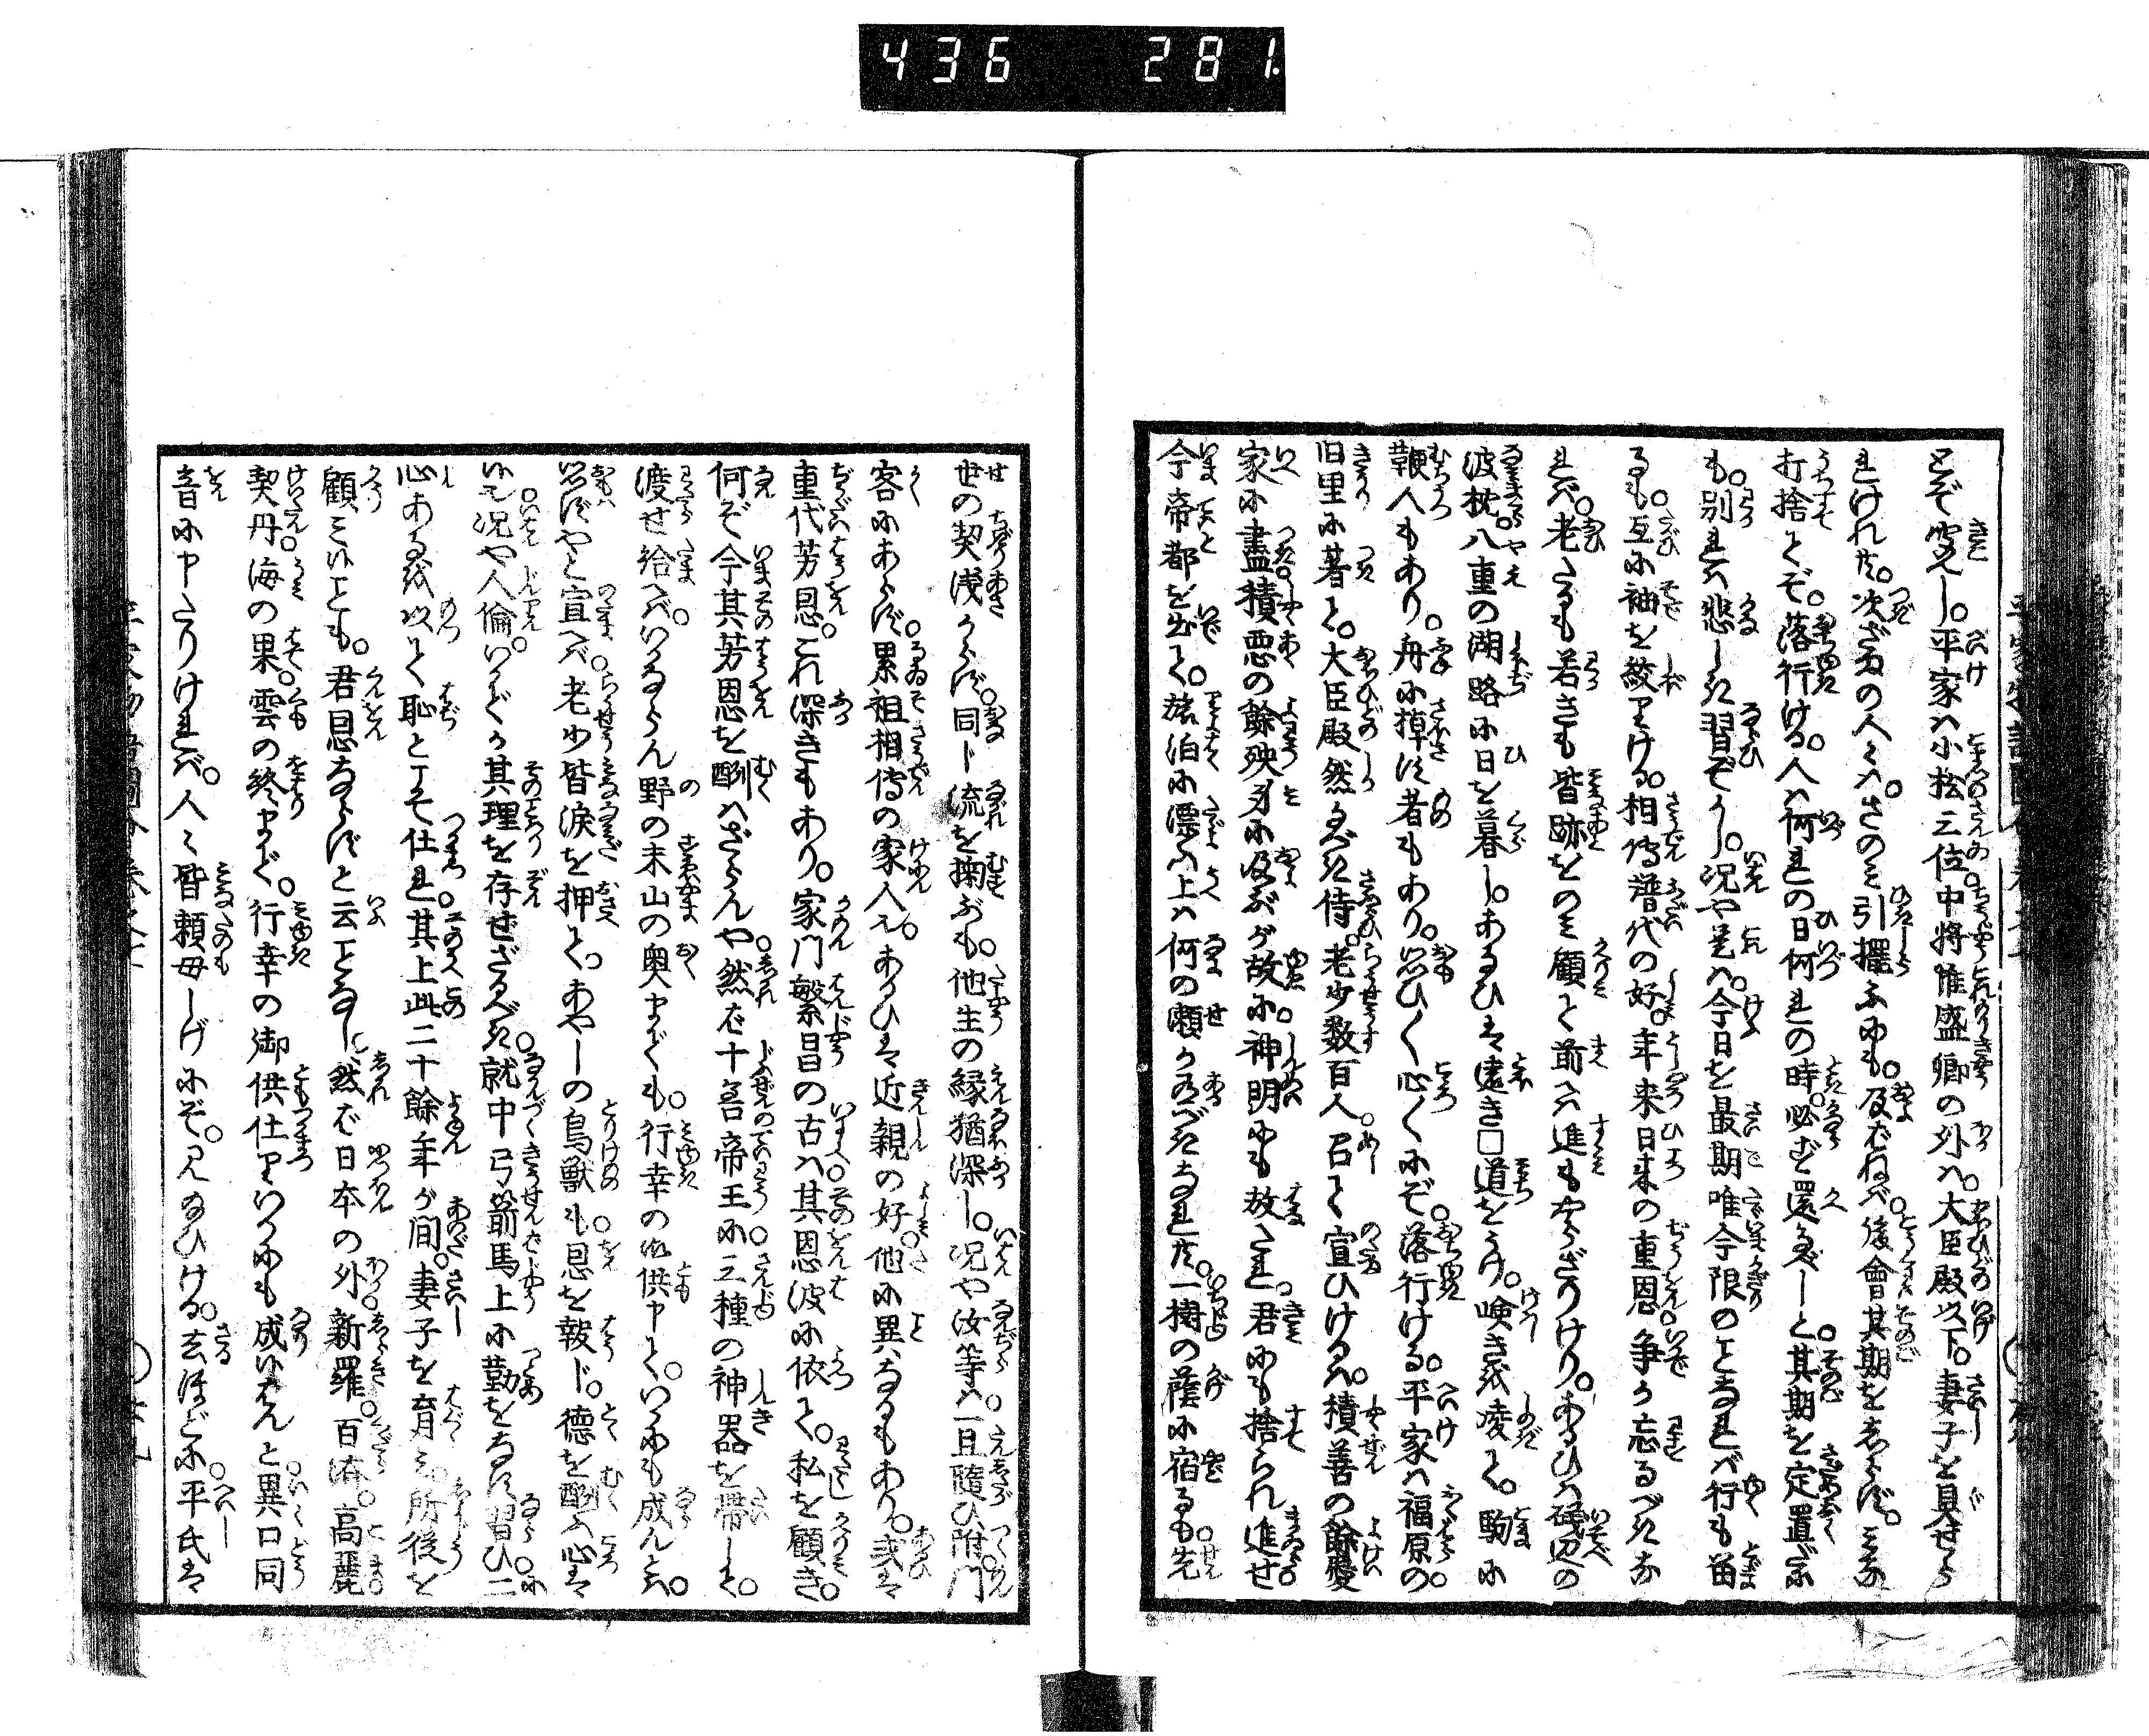 436 281.
とぞ聞えし。平家ハ小松三位中将惟盛卿の外ハ。大臣殿以下。妻子を具せら
れけれ共。次ざまの人々ハ。さのミ引擢ふにも。及ばねバ後會其期をしらず。ミな
打捨てぞ。落行ける。人ハ何れの日何れの時。必ず還るべしと其期を定置だに
も。別れハ悲しき習ぞかし。況や是ハ。今日を最期唯今限のことなれバ行も留
るも。互に袖を絞りける。相傳譜代の好。年来日来の重恩争か忘るべきな
れバ。老たるも若きも皆跡をのミ顧て前へハ進もやらざりけり。あるひハ礒辺の
波枕。八重の湖路に日を暮し。あるひは遠き□道をわけ。嶮きを凌て。駒に
鞭人もあり。舟に掉す者もあり。思ひ〳〵心〳〵にぞ。落行ける。平家ハ福原の
旧里に着て。大臣殿然るべき侍。老少数百人召て宣ひけるハ。積善の餘慶
家に盡積悪の餘殃身に及ぶが故に。神明にも放たれ。君にも捨られ進せ
今帝都を出て。旅泊に漂ふ上ハ何の頼か有べきなれ共。一樹の蔭に宿るも先
世の契浅からず。同じ流を掬ぶも。他生の縁猶深し。況や汝等ハ一旦隨ひ附門
客にあらず。累祖相傳の家人也。あるひは近親の好。他に異なるもあり。或は
重代芳恩これ深きもあり。家門繁昌の古ハ其恩波に依て。私を顧き。
何ぞ今其芳恩を酬ハざらんや然ば十善帝王に三種の神器を帶して。
渡せ給へバ。いかならん野の末山の奥までも。行幸の御供申て。いかにも成んとハ。
思ずやと宣へバ。老少皆涙を押て。あやしの鳥獣も恩を報じ。徳を酬ふ心は
候也。況や人倫。いかでか其理を存せざるべき。就中弓箭馬上に勤をなす習ひ二
心あるを以て恥とす。其上此二十餘年が間。妻子を育ミ。所従を
顧ミ候ことも。君恩ならずと云ことなし。然ば日本の外。新羅。百済。高麗
契丹。海の果。雲の終まで。行幸の御供仕りいかにも成候はんと異口同
音に申たりけれバ。人々皆頼母しげにぞ。見給ひける。去ほどに。平氏は